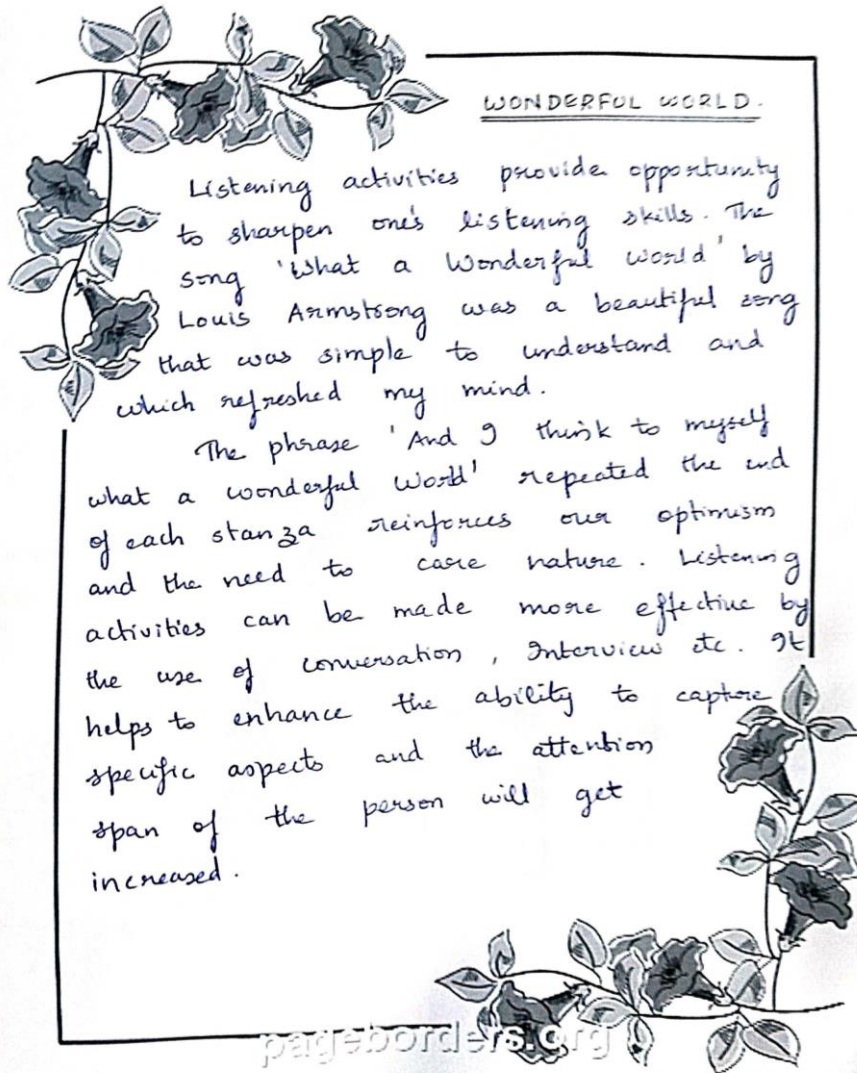 WONDERFUL WORLD.
Listening activities provide opportunity
to sharpen one's listening skills. The
song 'What a Wonderful World' by
Louis Armstrong was a beautiful song
that was simple to understand and
which refreshed my mind.
The phrase 'And I think to myself
what a wonderful World' repeated the end
of each stanza reinforces our optimism
and the need to care nature. Listening
activities can be made more effective by
the use of conversation, Interview etc. It
helps to enhance the ability to capture
specific aspects and the attention
span of the person will get
increased.
pageborders.org